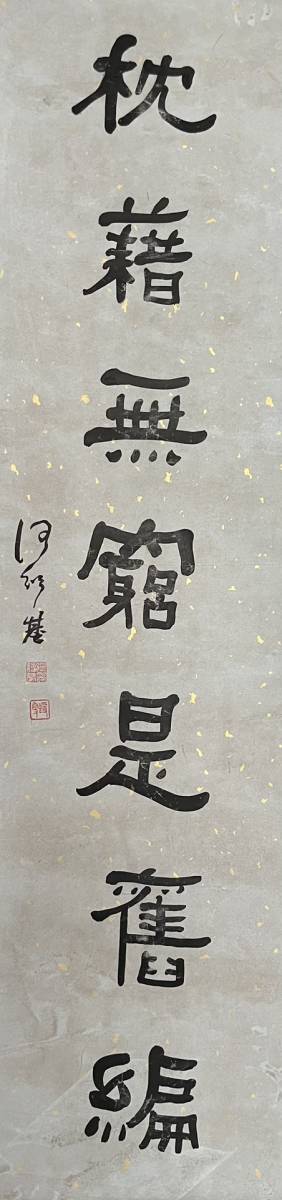 枕藉無窮是舊編
何紹基